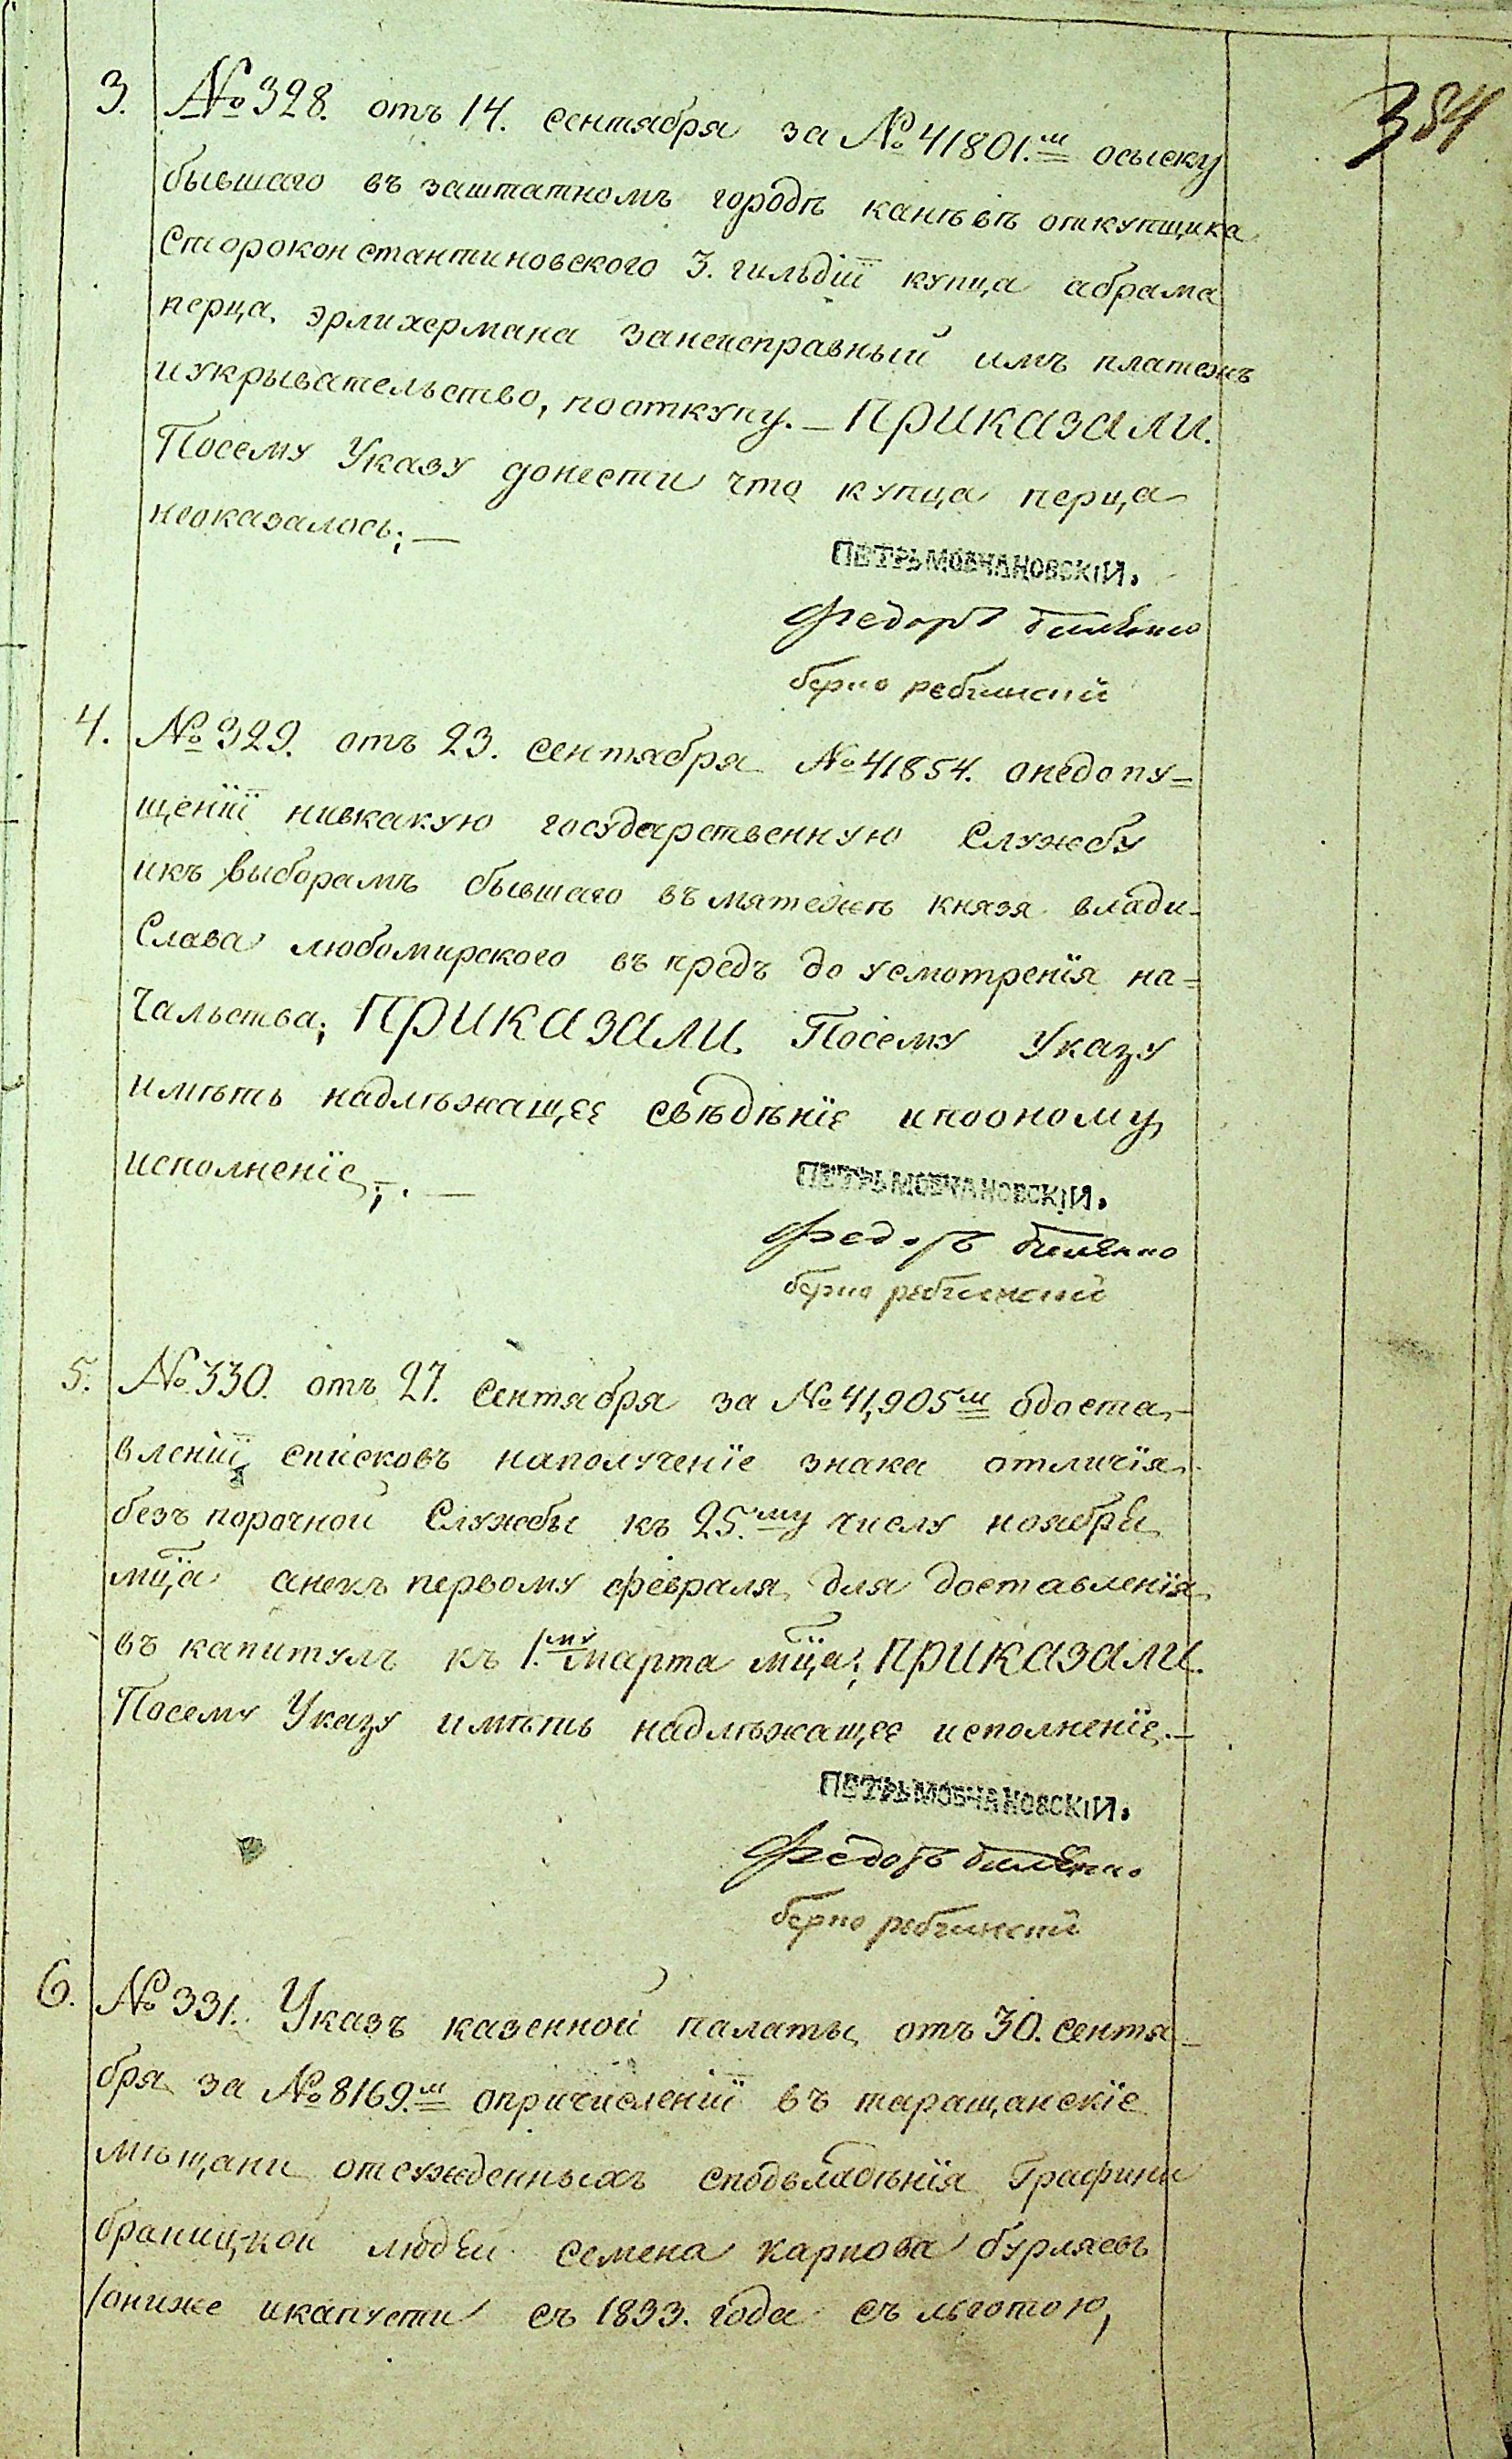 384
3. № 328. отъ 14. сентября за № 41801.м осыску
бывшаго въ заштатномъ городѣ каневѣ откупщика
Сторокон стантиновского 3. гильдіи купца абрама
перца. эрлихермана занеисправный имъ платежъ
иукрывательство, пооткупу. — ПРИКАЗАЛИ.
Посему Указу донести что купца перца
неоказалось; —
ПЕТРЪ МОВЧАНОВСКІЙ.
Федоръ билѣнко
берко ребинский
4. № 329. отъ 23. сентября № 41854. онедопу=
щеніи нивкакую государственную Службу
икъ выборамъ бывшаго въ мятежѣ князя влади-
Слава любомирского въ предъ до усмотренія на=
чальства; ПРИКАЗАЛИ. Посему Указу
имѣть надлѣжащее свѣдѣніе ипооному
исполненіе; . —
ПЕТРЪ МОВЧАНОВСКІЙ.
Федоръ билѣнко
берко ребинский
5. № 330. отъ 27. сентября за № 41,905м одоста-
вленіи списковъ наполученіе знака отличія
безъ порочной Службы къ 25.му числу ноября
мца анекъ первому февраля для доставленія
въ капитулъ къ 1.му марта мца; ПРИКАЗАЛИ.
Посему Указу имѣть надлѣжащее исполненіе. —
ПЕТРЪ МОВЧАНОВСКІЙ.
Федоръ билѣнко
берко ребинский
6. № 331. Указъ казенной палаты отъ 30. сентя-
бря за № 8169.м опричисленіи въ таращанскіе
мѣщани отсужденныхъ сподвладѣнія Графини
браницкой людей семена карпова бурляевъ
/ониже икапусти съ 1833. года съ льготою,